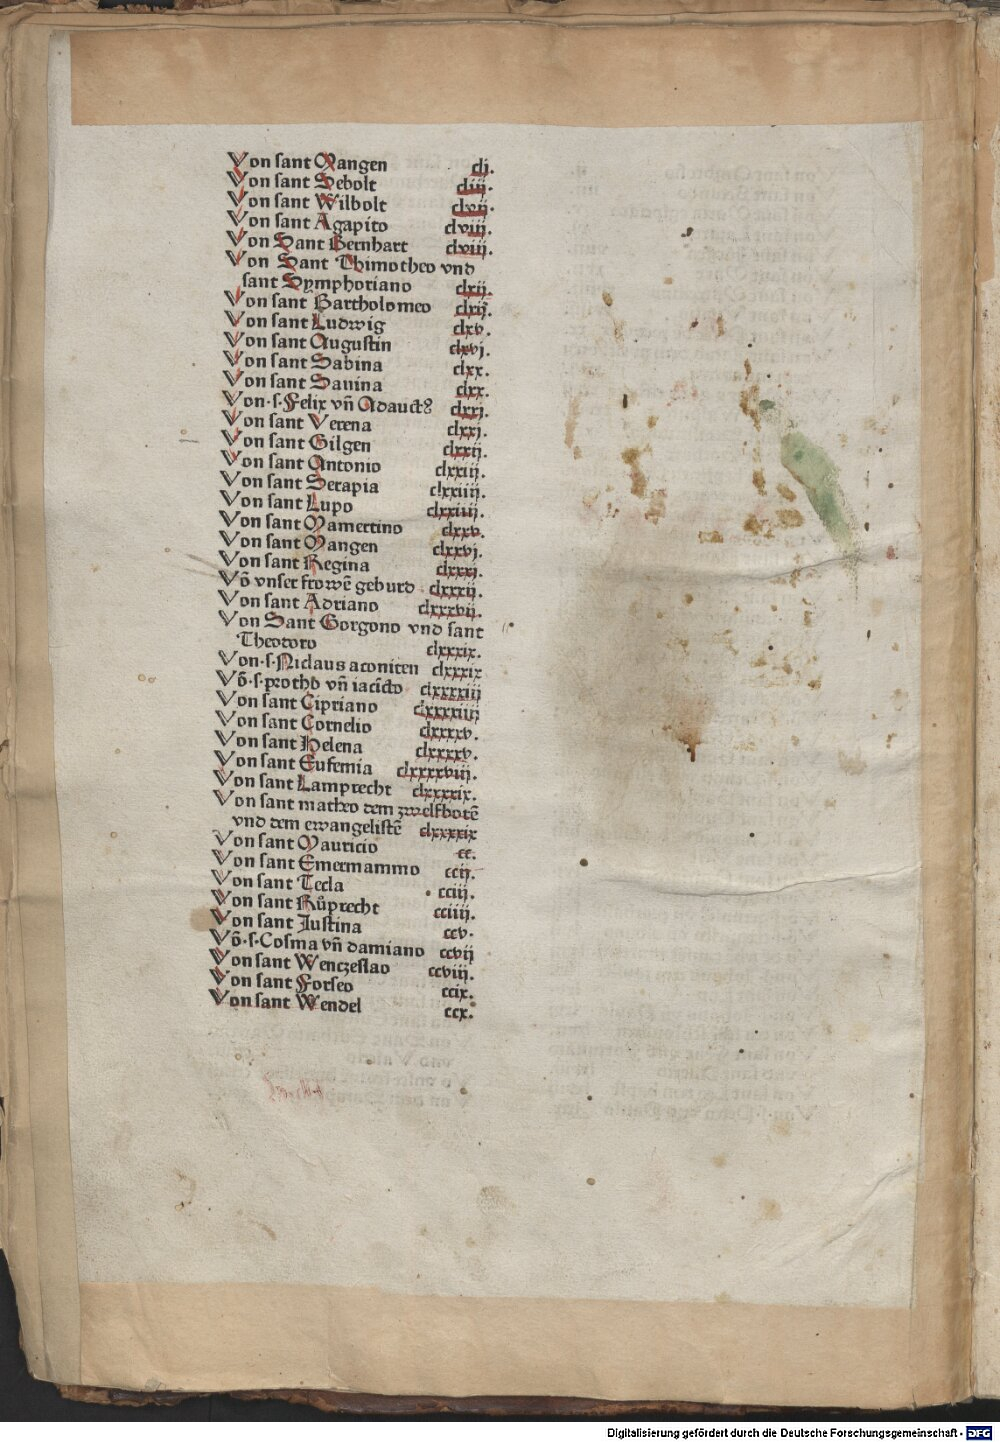 Von sant Mangen clj.
Von sant Sebolt cliij.
Von sant Wilbolt clvij.
Von sant Agapito clviij.
Von Sant Bernhart clviij.
Von Sant Thimotheo vnd
sant Symphoriano clxij.
Von sant Bartholomeo clxij.
Von sant Ludwig clxv.
Von sant Augustin clxvj.
Von sant Sabina clxx.
Von sant Sauina clxx.
Von·s·Felix vñ Adauctꝰ clxxj.
Von sant Verena clxxj.
Von sant Gilgen clxxij.
Von sant Antonio clxxiij.
Von sant Serapia clxxiiij.
Von sant Lupo clxxiiij.
Von sant Mamertino clxxv.
Von sant Mangen clxxvj.
Von sant Regina clxxxj.
Võ vnser frowẽ geburd clxxxij.
Von sant Adriano clxxxvij.
Von Sant Gorgono vnd sant
Theodoro clxxxix.
Von·s·Niclaus aconiten clxxxix
Võ·s·prothd vñ iacĩcto clxxxxiij
Von sant Cipriano clxxxxiiij
Von sant Cornelio clxxxxv.
Von sant Helena clxxxxv.
Von sant Eufemia clxxxxviij.
Von sant Lamprecht clxxxxix.
Von sant matheo dem zwelfbotẽ
vnd dem ewangelistẽ clxxxxix
Von sant Mauricio cc.
Von sant Emermammo ccij.
Von sant Tecla cciij.
Von sant Růprecht cciiij.
Von sant Justina ccv.
Võ·s·Cosma vñ damiano ccvij
Von sant Wenczeslao ccviij.
Von sant Forseo ccix.
Von sant Wendel ccx.
Digitalisierung gefördert durch die Deutsche Forschungsgemeinschaft - DFG